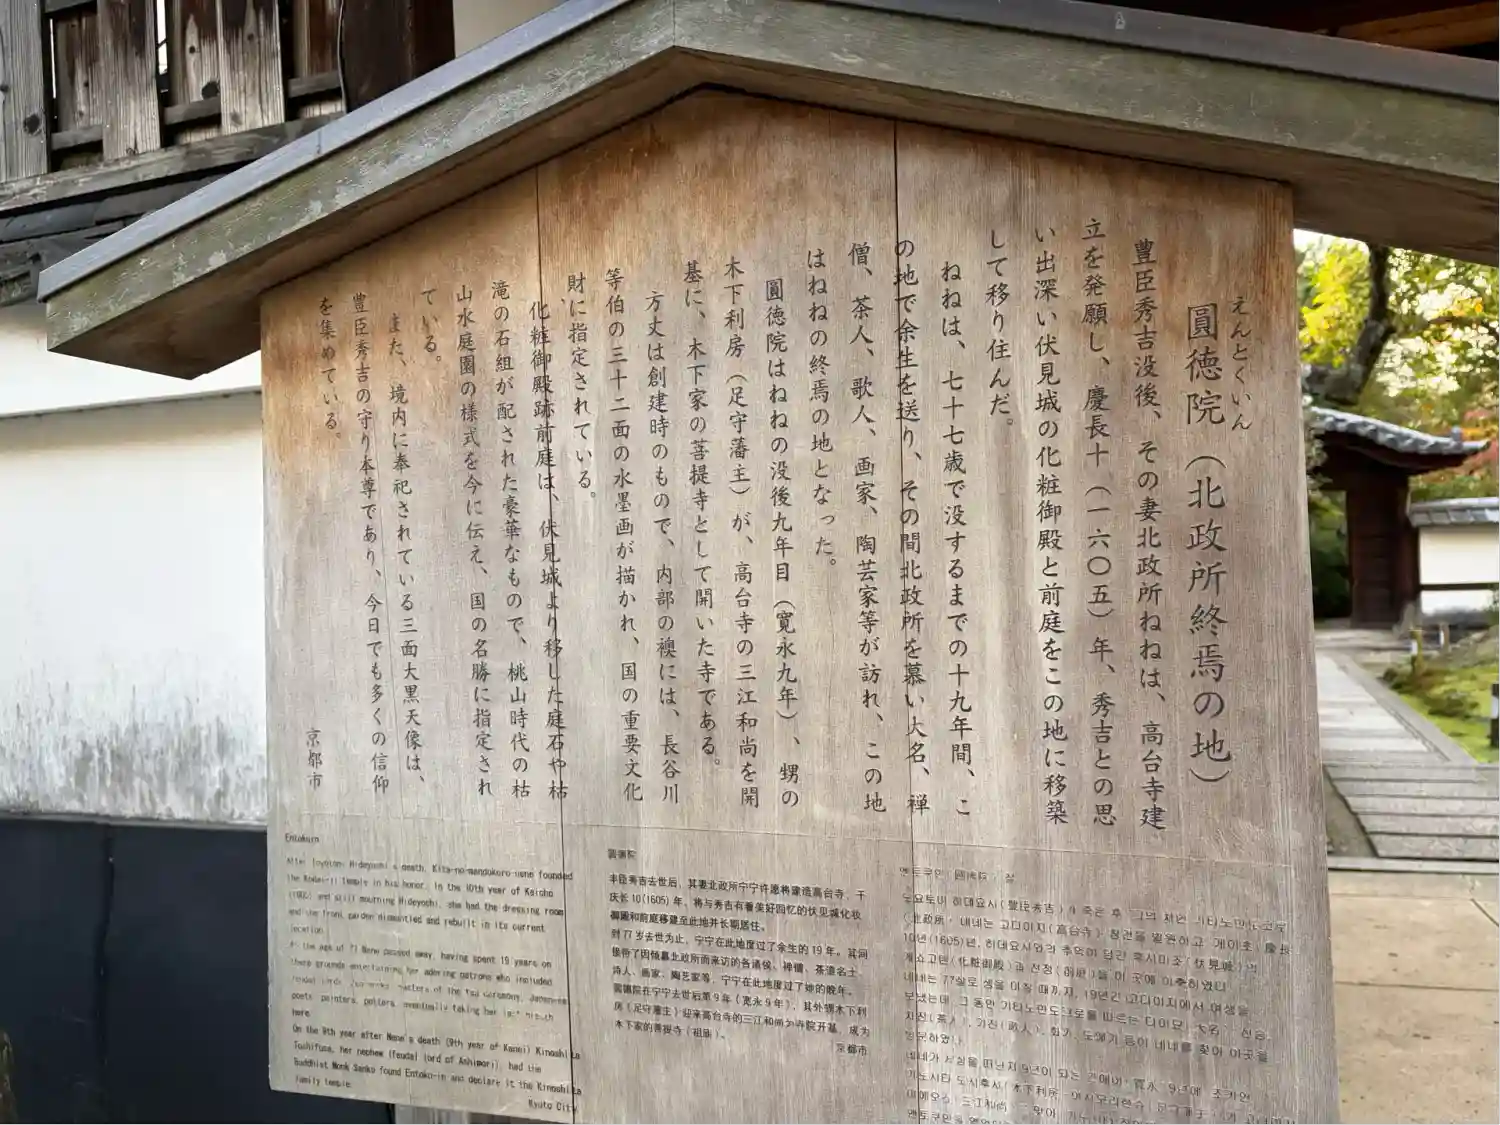 えんとくいん
圓徳院（北政所終焉の地）
豊臣秀吉没後、その妻北政所ねねは、高台寺建
立を発願し、慶長十（一六〇五）年、秀吉との思
い出深い伏見城の化粧御殿と前庭をこの地に移築
して移り住んだ。
ねねは、七十七歳で没するまでの十九年間、こ
の地で余生を送り、その間北政所を慕い大名、禅
僧、茶人、歌人、画家、陶芸家等が訪れ、この地
はねねの終焉の地となった。
圓徳院はねねの没後九年目（寛永九年）、甥の
木下利房（足守藩主）が、高台寺の三江和尚を開
基に、木下家の菩提寺として開いた寺である。
方丈は創建時のもので、内部の襖には、長谷川
等伯の三十二面の水墨画が描かれ、国の重要文化
財に指定されている。
化粧御殿跡前庭は、伏見城より移した庭石や枯
滝の石組が配された豪華なもので、桃山時代の枯
山水庭園の様式を今に伝え、国の名勝に指定され
ている。
また、境内に奉祀されている三面大黒天像は、
豊臣秀吉の守り本尊であり、今日でも多くの信仰
を集めている。
京都市
Entokuin
After Toyotomi Hideyoshi's death, Kita-no-mandokoro-nene founded
the Kodai-ji temple in his honor. In the 10th year of Keicho
and still mourning Hideyoshi, she had the dressing room
and the front garden dismantled and rebuilt in its current
location.
At the age of 77 Nene passed away, having spent 19 years on
these grounds entertaining her adoring patrons who included
feudal lords, masters of the tea ceremony, Japanese
poets, painters, potters, eventually taking her last breath
here.
On the 9th year after Nene's death (9th year of Kanei) Kinoshita
Toshifusa, her nephew (feudal lord of Ashimori), had the
Buddhist Monk Sanko found Entoku-in and declare it the Kinoshita
family temple.
Kyoto City
圓德院
丰臣秀吉去世后，其妻北政所宁宁许愿将建造高台寺，于
庆长10(1605)年，将与秀吉有着美好回忆的伏见城化妆
御殿和前庭移建至此地并长期居住。
到77岁去世为止，宁宁在此地度过了余生的19年。其间
接待了因倾慕北政所而来访的各诸侯、禅僧、茶道名士、
诗人、画家、陶艺家等，宁宁在此地度过了她的晚年。
圓德院在宁宁去世后第9年（宽永9年），其外甥木下利
房（足守藩主）迎来高台寺的三江和尚为寺院开基，成为
木下家的菩提寺（祖庙）。
京都市
엔토쿠인（圓德院）절
도요토미 히데요시（豊臣秀吉）가 죽은 후 그의 처인 기타노만도코로
（北政所）네네는 고다이지（高台寺）창건을 발원하고, 게이초（慶長）
10년(1605)년, 히데요시와의 추억이 담긴 후시미조（伏見城）의
게쇼고텐（化粧御殿）과 전정（前庭）을 이 곳에 이축하였다.
네네는 77살로 생을 마칠 때까지, 19년간 고다이지에서 여생을
보냈는데, 그 동안 기타노만도코로를 따르는 다이묘（大名）, 선승,
차진（茶人）, 가진（歌人）, 화가, 도예가 등이 네네를 찾아 이곳을
방문하였다.
네네가 세상을 떠난지 9년이 되는 간에이（寛永）9년에 조카인
기노시타 도시후사（木下利房）
三江和尚